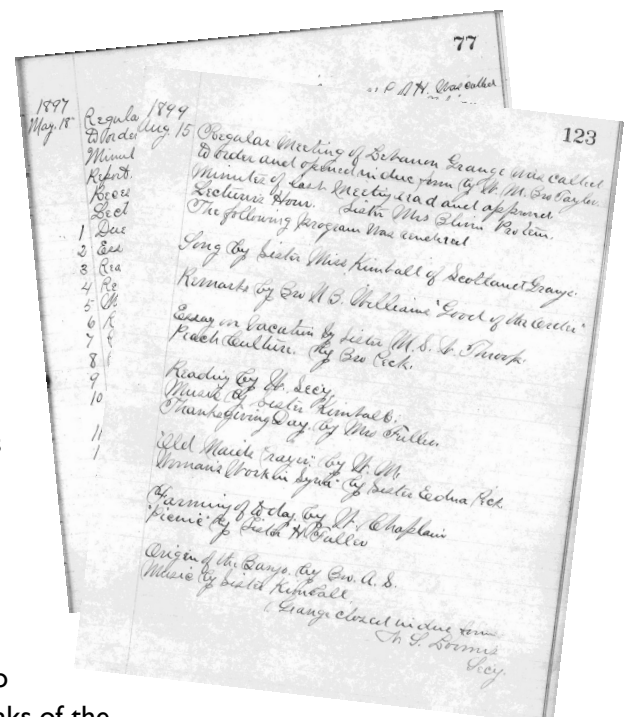 77
was called
1897
May. 18
Regula
to order
Minut
Report.
Rece
Lect
1 Due
2 Ess
3 Rea
4 Re
5 M
6
7
8
9
10
11
1
123
1899
Aug. 15 Regular Meeting of Lebanon Grange was called
to order and opened in due form by W. M. Bro Taylor.
Minutes of last Meeting read and approved.
Lecturers Hour. Sister Mrs Protem.
The following program was rendered
Song by Sister Miss Kimball of Scotland Grange.
Remarks by Bro N. B. Williams "Good of the Order"
Essay on Vacation by Sister M. S. W. Throop.
Peach Culture. by Bro Peck.
Reading by W. Secy.
Music by Sister Kimball.
Thanksgiving Day. by Mrs Fuller.
"Old Maids Prayer" by W. M.
Womans Work in Syria" by Sister Eedna Peck
Farming of today. by W. Chaplain
"Picnic" by Sister H. Fuller
Origin of the Banjo. by Bro. A. S.
Music by Sister Kimball.
Grange closed in due form
Loomis
Secy.
nks of the